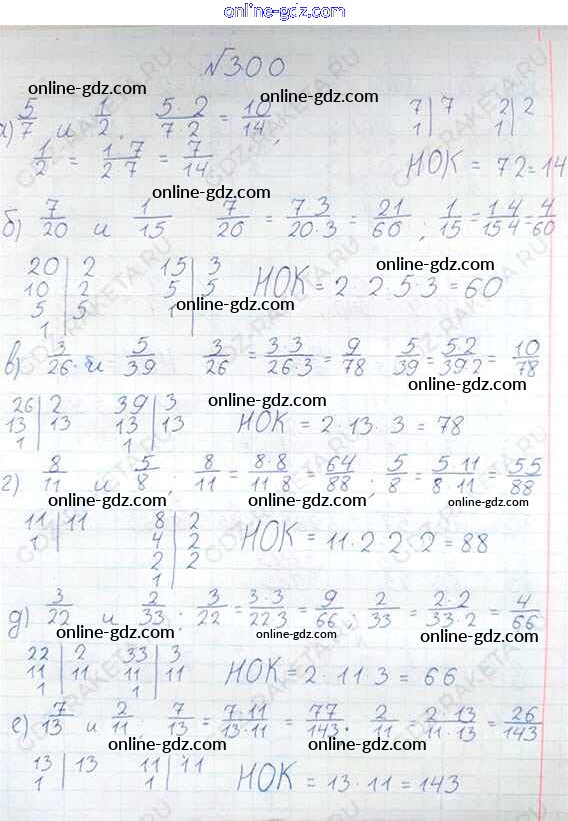 online-gdz.com
№300
online-gdz.com online-gdz.com
а) 5/7 и 1/2, 5·2/7·2 = 10/14; 7|7 2|2
1| 1|
1/2 = 1·7/2·7 = 7/14 НОК = 7 2 = 14
online-gdz.com
б) 7/20 и 1/15 7/20 = 7 3/20·3 = 21/60; 1/15 = 1 4/15 4 = 4/60
20|2 15|3 НОК = 2·2·5·3 = 60
online-gdz.com
10|2 5|5
5|5 1|
1|
online-gdz.com
в) 3/26 и 5/39 3/26 = 3·3/26·3 = 9/78 5/39 = 5·2/39·2 = 10/78
online-gdz.com
26|2 39|3 НОК = 2·13·3 = 78
13|13 13|13
1| 1|
online-gdz.com
г) 8/11 и 5/8; 8/11 = 8·8/11 8 = 64/88; 5/8 = 5·11/8·11 = 55/88
online-gdz.com online-gdz.com online-gdz.com
11|11 8|2 НОК = 11·2 2·2 = 88
1| 4|2
2|2
1|
online-gdz.com
д) 3/22 и 2/33; 3/22 = 3·3/22 3 = 9/66; 2/33 = 2·2/33·2 = 4/66
online-gdz.com online-gdz.com online-gdz.com
22|2 33|3 НОК = 2·11·3 = 66
11|11 11|11
1| 1|
е) 7/13 и 2/11; 7/13 = 7·11/13·11 = 77/143. 2/11 = 2·13/11·13 = 26/143
online-gdz.com online-gdz.com online-gdz.com
13|13 11|11 НОК = 13·11 = 143
1| 1|